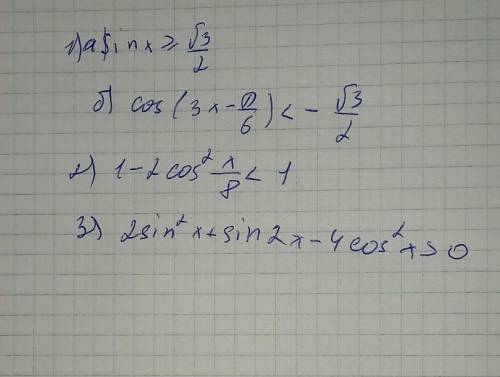 1) а) sin x ≥ √3/2
б) cos(3x - π/6) < - √3/2
2) 1 - 2cos² x/8 < 1
3) 2sin² x + sin 2x - 4cos² x > 0